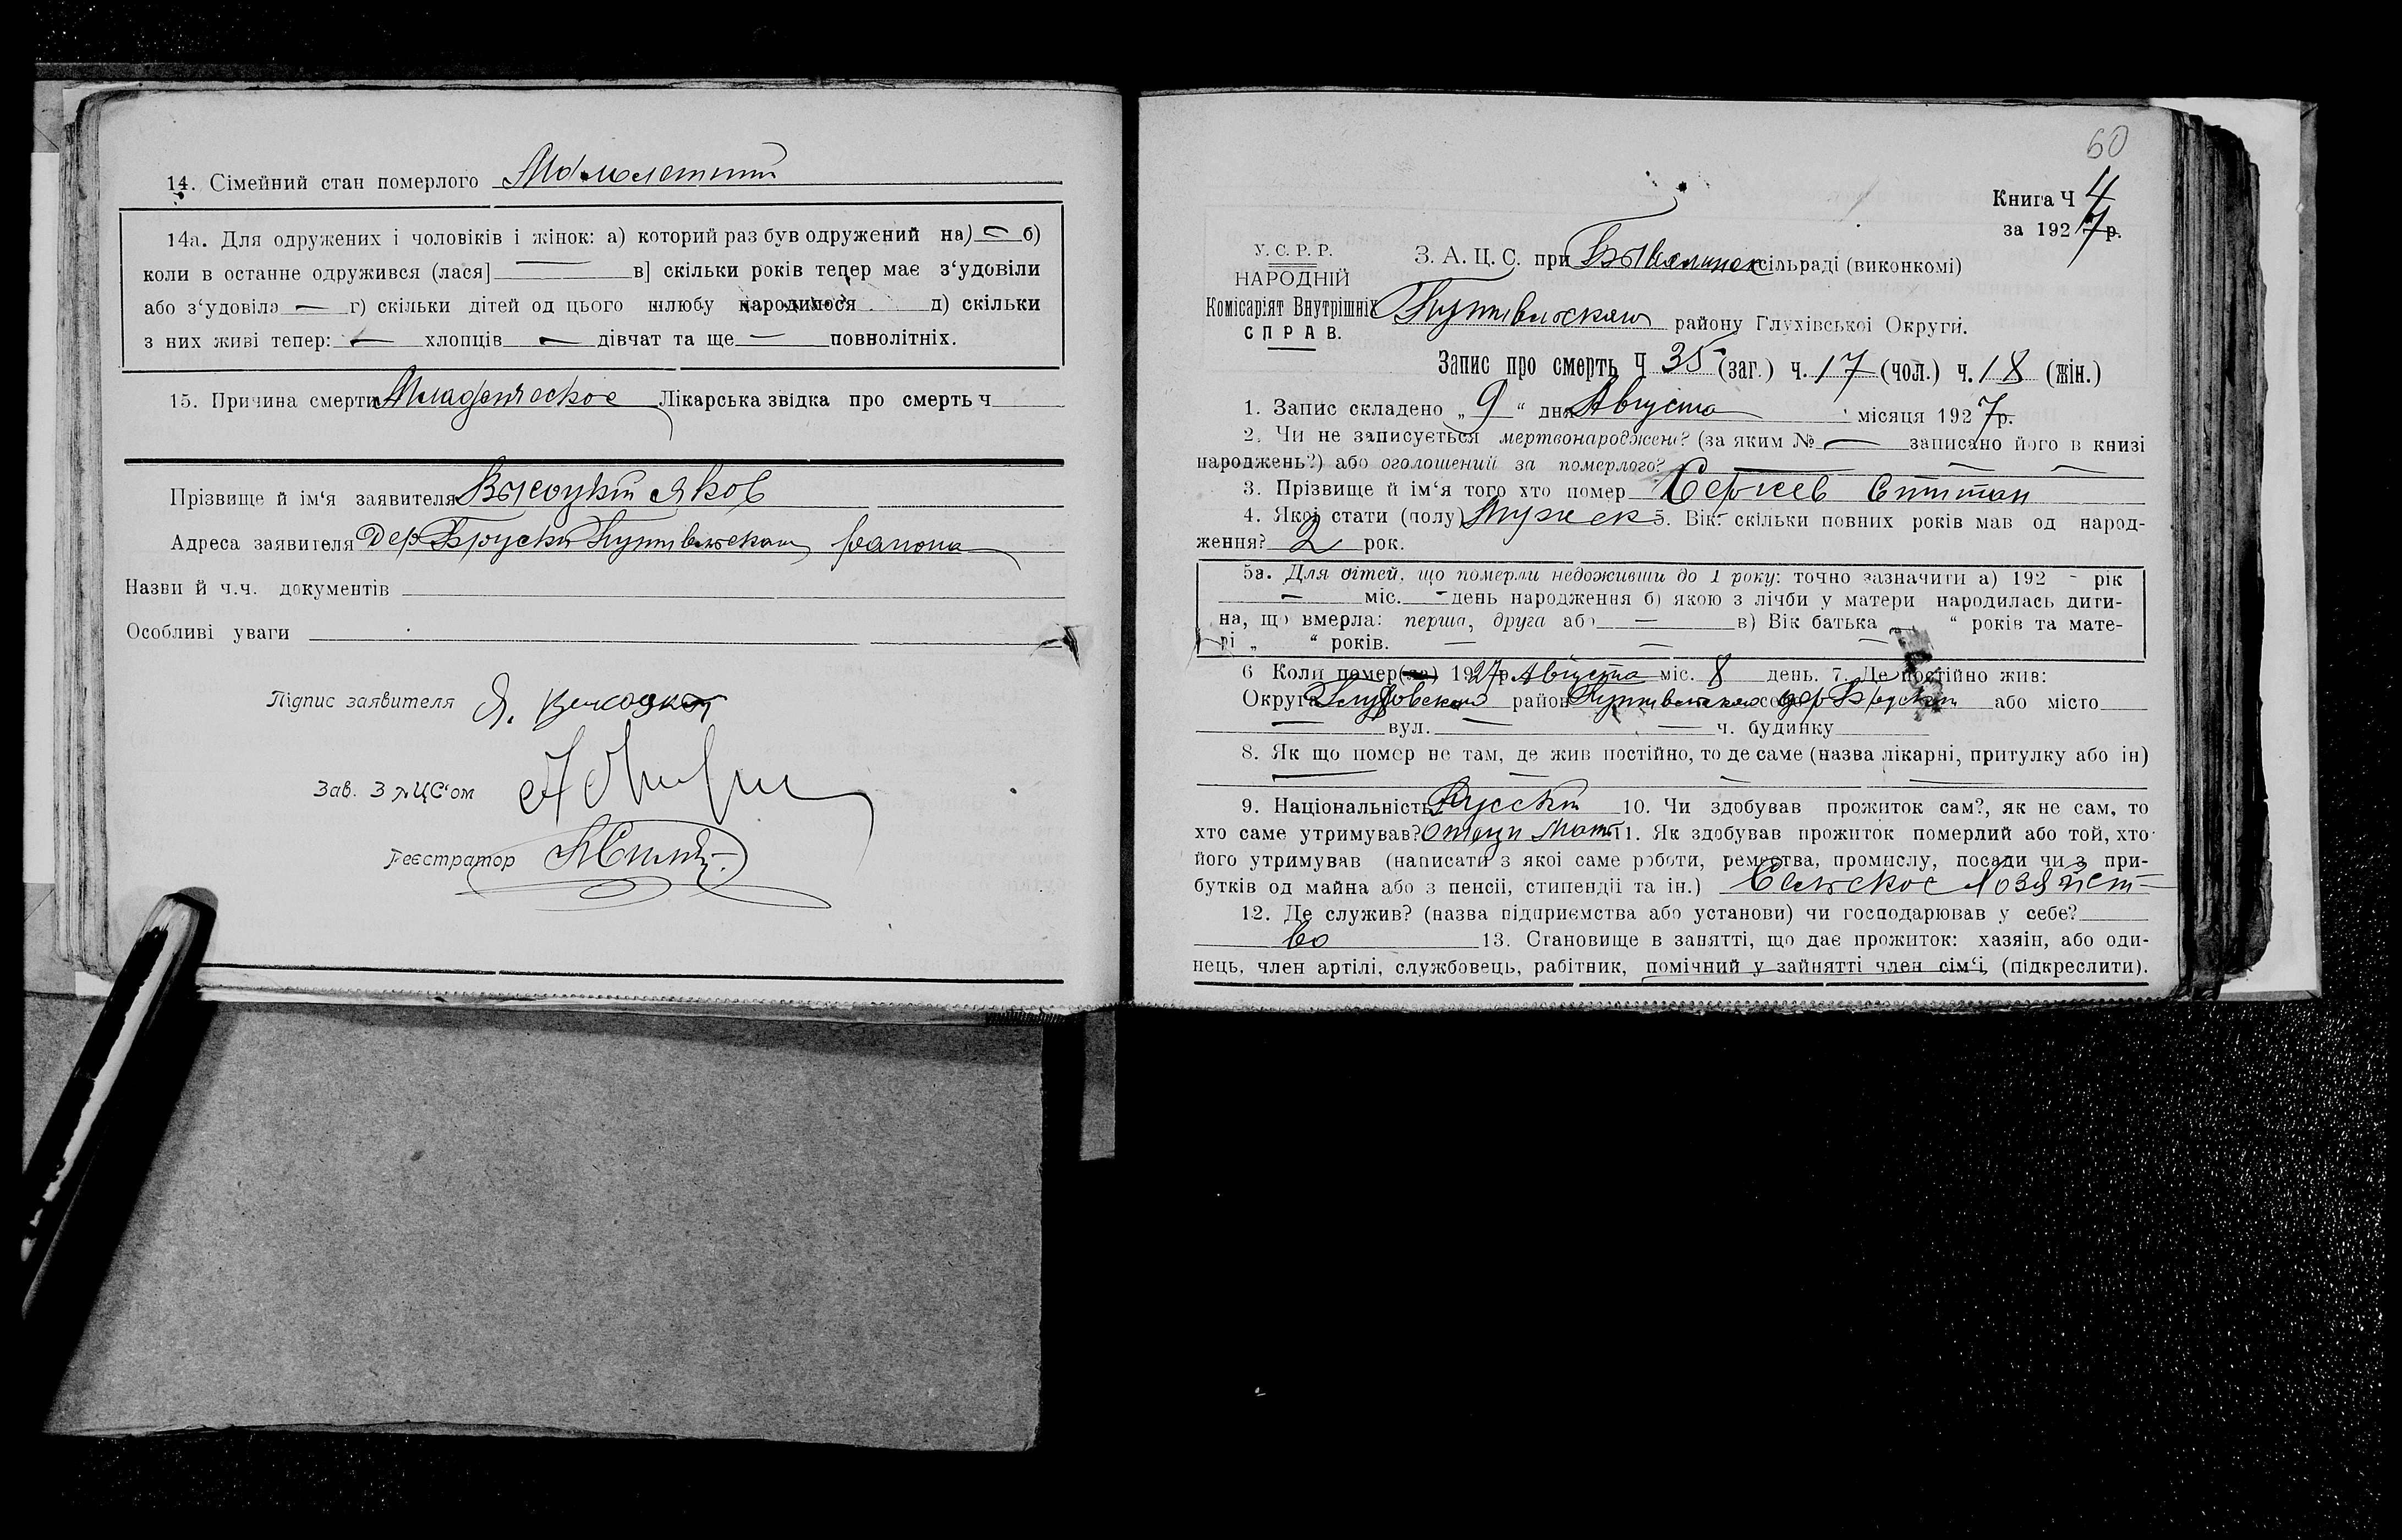 14. Сімейний стан померлого Малолетний
14а. Для одружених і чоловіків і жінок: а) которий раз був одружений на) — б)
коли в останне одружився (лася] — в] скільки років тепер має з‘удовіли
або з‘удовіла — г) скільки дітей од цього шлюбу народилося д) скільки
з них живі тепер: — хлопців — дівчат та ще — повнолітніх.
15. Причина смерти Младенческое Лікарська звідка про смерть ч
Прізвище й ім‘я заявителя Высоцкий Яков
Адреса заявителя Дер Бруски Путивльского района
Назви й ч.ч. документів
Особливі уваги
Підпис заявителя Я. Высоцкий
Зав. ЗАЦС‘ом
Реєстратор
60
Книга Ч 4
за 1927 р.
У. С. Р. Р.
НАРОДНІЙ
Комісаріят Внутрішніх
СПРАВ.
З. А. Ц. С. при сільраді (виконкомі)
Путивльского району Глухівської Округи.
Запис про смерть Ч 35 (заг.) ч. 17 (чол.) ч. 18 (жін.)
1. Запис складено „ 9 “ дня Августа місяця 1927 р.
2. Чи не записується мертвонароджене? (за яким № — записано його в книзі
народжень?) або оголошений за померлого? —
3. Прізвище й ім‘я того хто помер Сергеев
4. Якої стати (полу) Мужск 5. Вік: скільки повних років мав од народ-
ження? 2 рок.
5а. Для дітей, що померли недоживши до 1 року: точно зазначити а) 192 - рік
— міс. - день народження б) якою з лічби у матери народилась дити-
на, що вмерла: перша, друга або — в) Вік батька „ “ років та мате-
рі „ “ років. —
6 Коли помер(ла) 1927 р. Августа міс. 8 день. 7. Де постійно жив:
Округа Глуховского район Путивльского село дер Бруски або місто
— вул. — ч. будинку
8. Як що помер не там, де жив постійно, то де саме (назва лікарні, притулку або ін)
9. Національність Русский 10. Чи здобував прожиток сам?, як не сам, то
хто саме утримував? Отец и Мать 11. Як здобував прожиток померлий або той, хто
його утримував (написати з якої саме роботи, ремества, промислу, посади чи з при-
бутків од майна або з пенсії, стипендії та ін.) Сельское хозяйст-
12. Де служив? (назва підприємства або установи) чи господарював у себе?
во 13. Становище в занятті, що дає прожиток: хазяїн, або оди-
нець, член артілі, службовець, рабітник, помічний у зайнятті член сім‘ї, (підкреслити).